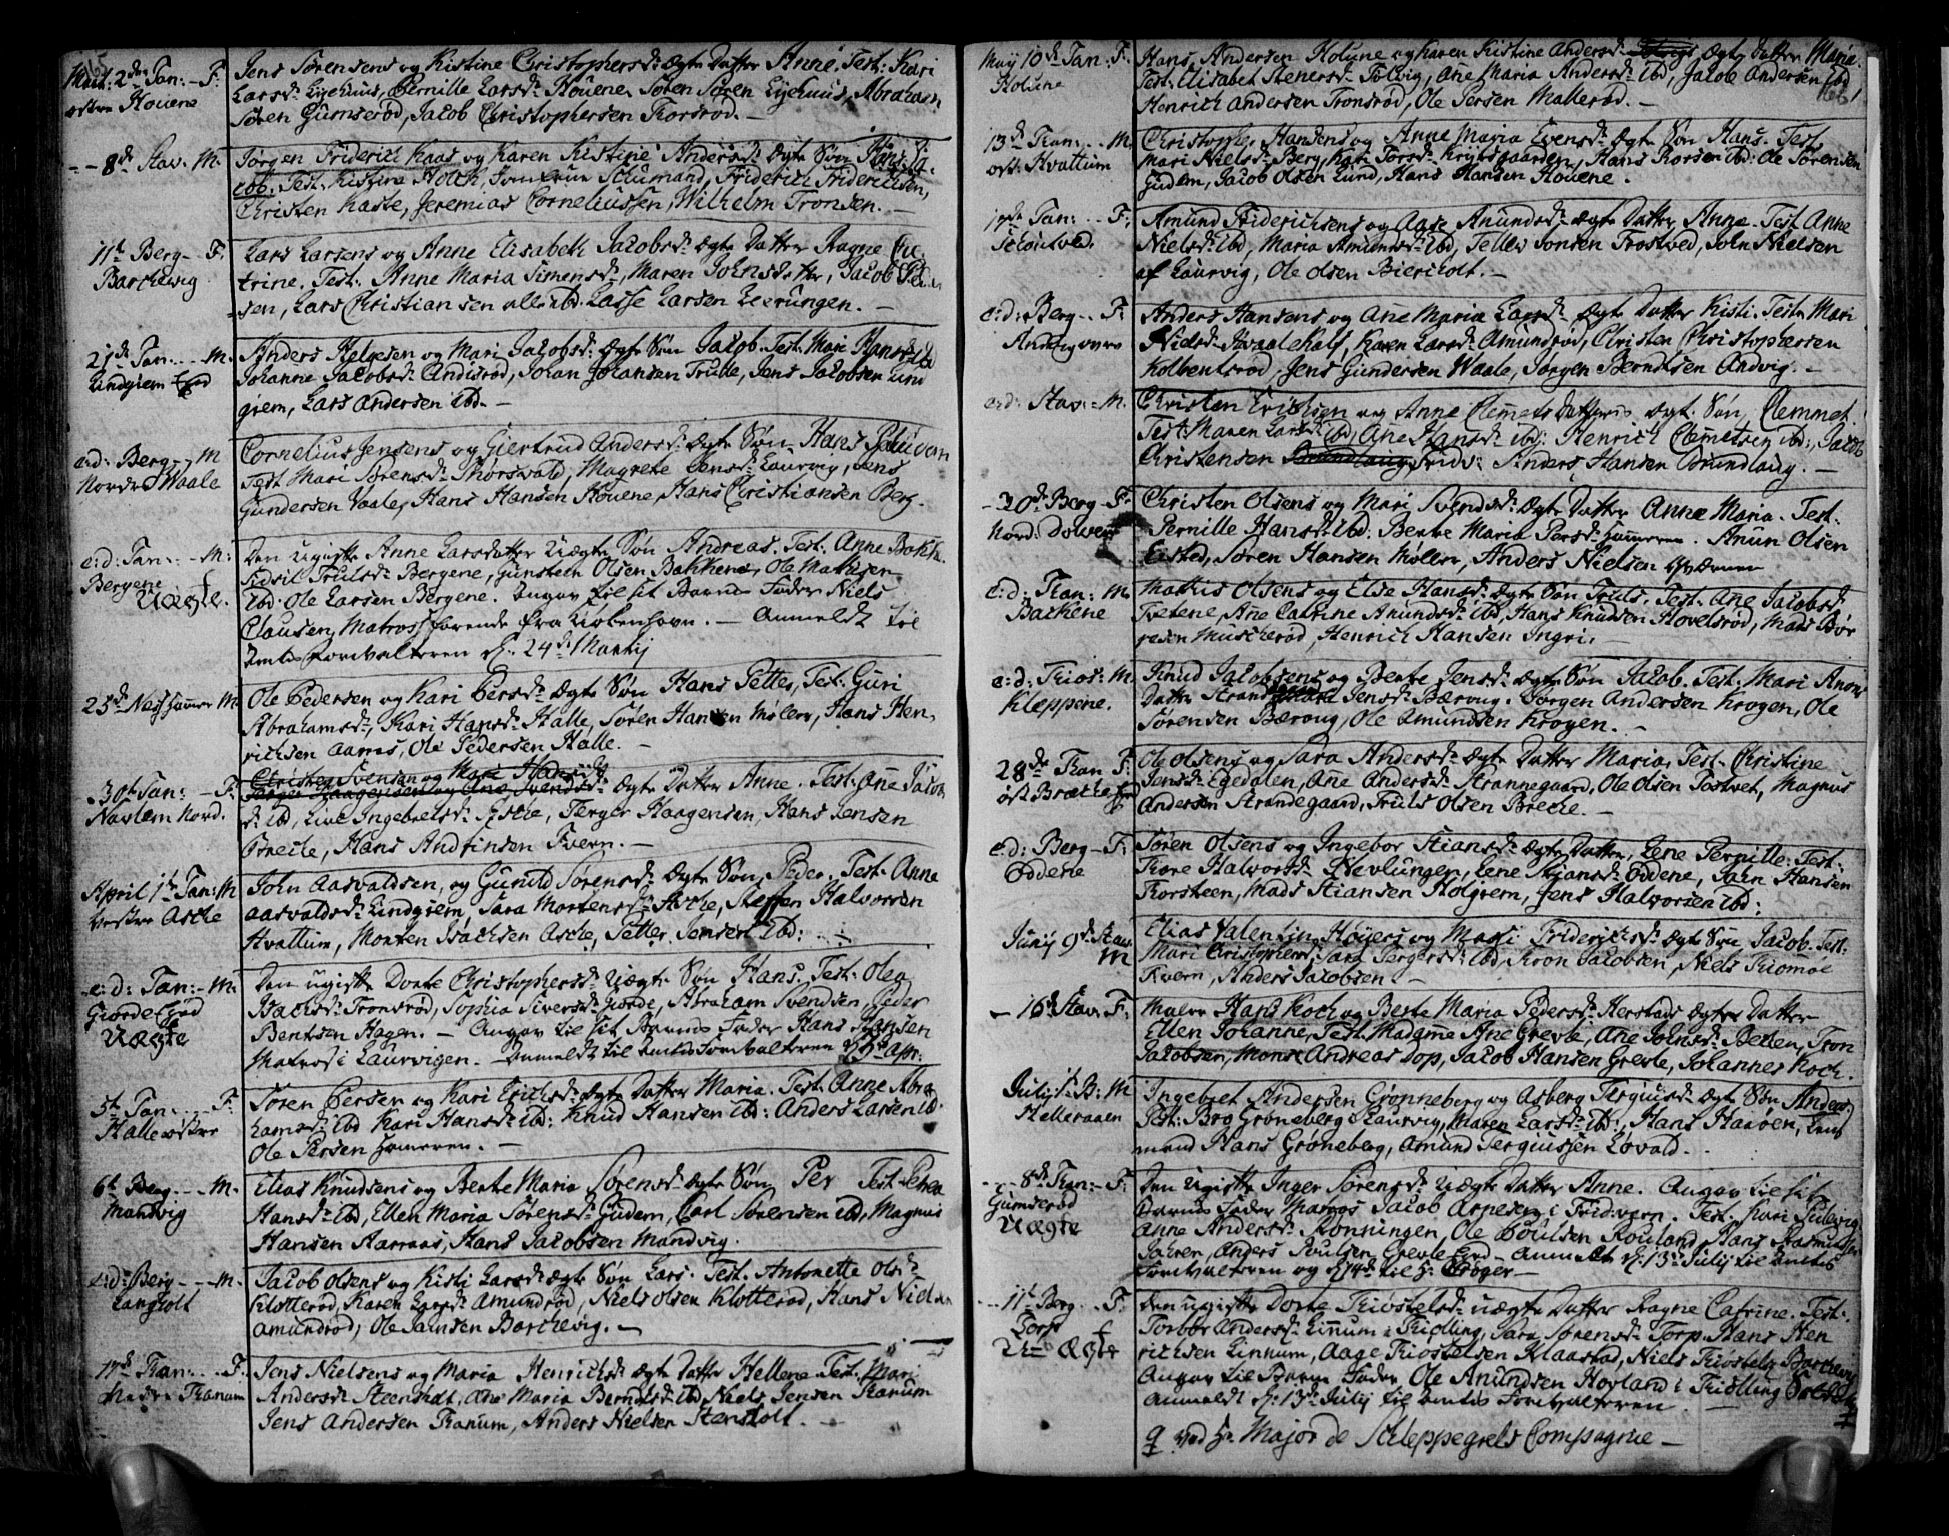 165
Mart: 2den Tan: - F.
østre Houene
Jens Sørensens og Kistine Christophersd: Ægte Datter Anne. Test: Kari
Larsd: Lysehuus, Pernille Larsd: Houene, Søren Søren Lysehuus, Abraham
Søren Gumserød, Jacob Christophersen Torsrød. —
- - 8de Stav. M.
Jørgen Friderich Kaas og Karen Kistine Andersd: Ægte Søn Hans Ja-
cob. Test: Kistine Holck, Jomfrue Schumand, Friderich Friderichsen,
Christen Kaste, Jeremias Corneliussen, Wilhelm Tronsen. —
11te Berg - F.
Barchevig
Lars Larsens og Anne Elisabeth Jacobsd: Ægte Datter Ragne Ca-
trine. Test: Anne Maria Simensd:, Maren Johnsdatter, Jacob
sen, Lars Christiansen alle ibd: Lasse Larsen Leerungen. —
21de Tan: - - M.
Lindgiem Eje
Anders Helgesen og Mari Jacobsd: Ægte Søn Jacob. Test: Mari Hansd: ibd
Johanne Jacobsd: Andisrød, Johan Johansen Trube, Jens Jacobsen Lind
giem, Lars Andersen ibd. —
e: d: Berg - - M
Nordre Waale
Cornelius Jensens og Giertrud Andersd: Ægte Søn Hans
Test Mari Sørensd: Thorsvald, Magrete Jensd: Laurvig, Jens
Gundersen Vaale, Hans Hansen Houene, Hans Christiansen Berg.
e: d: Tan: - - M:
Bergene
Uægte.
Den ugifte Anne Larsdatter Uægte Søn Andreas. Test: Anne Bakk:
Sidsil Trulsd: Bergene, Gunsteen Olsen Bakkene, Ole Mathisen
ibd: Ole Larsen Bergene. Angav til sit Barns Fader Niels
Clausen, Matros farende fra Kiøbenhavn. — Anmeldt til
Amts Forvalteren d: 24de Martij
25de Nesshamer M.
Ole Pedersen og Kari Persd: Ægte Søn Hans Petter, Test: Guri
Abrahamsd:, Kari Hansd: Halle, Søren Hansen Møller, Hans Hen-
richsen Aarøs, Ole Pedersen Halle. —
30te Tan: - F.
Navlem Nord.
Christen Svensen og Mari Hansd:
Ægte Datter Anne. Test: Ane Jacob
d: ibd, Live Ingebretsd: Asche, Terger Haagensen, Hans Jensen
Breche, Hans Andrinsen Tvern. —
April 1te Tan: M
Vestre Asche
John Aasvaldsen, og Gunild Sørensd: Ægte Søn Peder. Test: Anne
Aasvaldsd: Lindgiem, Sara Mortensd: Asche, Steffen Halvorsen
Hvattum, Morten Isachsen Asche, Petter Jensen ibd: —
e: d: Tan: - M:
Giorde Eje
Uægte
Den ugifte Dorte Christophersd: Uægte Søn Hans. Test: Olea
Isachsd: Tronsrød, Sophia Siversd: Giorde, Abraham Svendsen, Peder
Bentsen Hagen. — Angav til sit Barns Fader Hans Hansen
Matros i Laurvigen. — Anmeldt til Amts Forvalteren apr:
5te Tan: - - F.
Halle østre
Søren Persen og Kari Erichsd: Ægte Datter Maria. Test: Anne Abra
hamsd: ibd Kari Hansd: ibd: Knud Hansen ibd: Anders Larsen ibd:
Ole Persen Hameren. —
6te Berg - - M.
Mandvig
Elias Knudsens og Berte Maria Sørensd: Ægte Søn Per Test:
Hansd: ibd, Ellen Maria Sørensd: Gudem, Carl Sørensen ibd, Magnus
Hansen Aarraas, Hans Jacobsen Mandvig.
e: d: Berg - - M.
Langholt
Jacob Olsens og Kisti Larsd: Ægte Søn Lars. Test: Antonette Olsd:
Klotterød, Karen Larsd: Amundrød, Niels Olsen Klotterød, Hans Niels
Amundrød, Ole Jamsen Barchevig. —
17de Tran: - - F.
Nedre Tranum
Jens Nielsens og Maria Henrichsd: Ægte Datter Hellene. Test: Mari
Andersd: Steensholt, Ane Maria Berntsd: ibd, Niels Jensen Tranum
Jens Andersen Tranum, Anders Nielsen Stensholt. —
166
May 10de Tan: F.
Holune
Hans Andersen Holune og Karen Kistine Andersd: Ægte Datter Maria.
Test: Elisabet Stenersd: Tolvig, Ane Maria Andersd: ibd, Jacob Andersen ibd
Henrich Andersen Tronsrød, Ole Persen Mallerød. —
13de Tran: - - M.
øst: Hvattum
Christopher Hansens og Anne Maria Evensd: Ægte Søn Hans. Test
Mari Nielsd: Berg, Kari Torsd: Krydsgaarden, Hans Korsen ibd: Ole Sørensen
Gudem, Jacob Olsen Lund, Hans Hansen Houene.
17de Tan: - - F.
Amund Friderichsens og Aase Anundsd: Ægte Datter Anne. Test Anne
Nielsd: ibd, Maria Amundsd: ibd, Tellev Jonsen Trostved, John Nielsen
af Laurvig, Ole Olsen Biericholt. —
e: d: Berg - - F:
Anders Hansens og Ane Maria Larsd: Ægte Datter Kisti. Test: Mari
Nielsd: Hvaalehals, Karen Larsd: Amundrød, Christen Christophersen
Kolbentsrød, Jens Gundersen Waale, Jørgen Berndtsen Andvig. —
e: d: Stav: - M.
Christen Erichsen og Anne Clemets Datters Ægt: Søn Clemmet.
Test: Maren Larsd: ibd, Ane Hansd: ibd: Henrich Clemetsen ibd:, Jacob
Christensen Frids: Anders Hansen Brundlaug. —
- 20de Berg - F.
Nord: Dolven
Christen Olsens og Mari Svendsd: Ægte Datter Anne Maria. Test:
Pernille Hansd: ibd: Berte Maria Persd: Hameren. Anun Olsen
Eisted, Søren Hansen Møller, Anders Nielsen
e: d: Tran: M
Bachene
Mathis Olsens og Else Hansd: Ægte Søn Truls. Test: Ane Jacobsd:
Tvetene, Ane Catrine Anundsd: ibd, Hans Knudsen Hovelsrød, Mads Bør
resen Muscherød, Henrich Hansen Ingris.
e: d: Frids: M
Kleppene.
Knud Jacobsens og Berte Jensd: Ægte Søn Jacob. Test: Mari Anons
Datter Strand Jensd: Bærvug. Jørgen Andersen Krogen, Ole
Sørensen Bærvug, Ole Amundsen Krogen. —
28de Tran F:
øst Bræche
Ole Olsens og Sara Andersd: Ægte Datter Maria, Test: Christine
Jensd: Egedalen, Ane Andersd: Strannegaard, Ole Olsen Tostvet, Magnus
Andersen Strandegaard, Truls Olsen Breche. —
e: d: Berg - F:
Oddene
Søren Olsens og Ingebor Stiansd: Ægte Datter, Lene Pernille. Test:
Tore Halvorsd: Nevlungen, Lene Stiansd: Oddene, Jarn Hansen
Korsteen, Mads Stiansen Holgrem, Jens Halvorsen ibd:
Junij 9de Stav.
M
Elias Valentin Høyers og Massi Friderichsd: Ægte Søn Jacob. Test:
Mari Christophers, Sara Tergersd: ibd, Tron Jacobsen, Niels Friomoe
Tvern, Anders Jacobsen. —
- 16de Stav. F:
Maler Hans Koch og Berte Maria Pedersd: Herstads Ægte Datter
Ellen Johanne, Test: Madame Ane Greve, Ane Johnsd: Betten, Tron
Jacobsen, Mons Andreas Dop, Jacob Hansen Greve, Johannes Koch.
Julij 1te B: M
Helleraaen
Ingebret Andersen Grønneberg og Asberg Tergiusd: Ægte Søn Anders.
Test: Bro Groneberg i Laurvig, Maren Larsd: ibd:, Hans Haaøen, Lens
mand Hans Groneberg, Amund Tergiussen Lovald.
- - 8de Tran: - F:
Gumserød
Uægte
Den Ugifte Inger Sørensd: Uægte Datter Anne. Angav til sit
Barns Fader Matros Jacob Aspesen i Frid:vern. Test: Kari
Anne Andersd: Rønningen, Ole Poulsen Rouland, Hans Rasmussen
Jahren, Anders Poulsen Grevle Ejed — Anmeldt d: 13de Julij til Amts
Forvalteren og d: 14de til Hr: Crøger —
- - 11te Berg - - F.
Torp
Uægte
Den ugifte Dorte Triostelsd: uægte Datter Ragne Catrine. Test:
Torbor Andersd: Linnum i Tiødling, Sara Sørensd: Torp. Hans Hen
richsen Linnum, Aage Triostelsen Klaastad, Niels Triostels: Barchevig
Angav til Barne Fader Ole Anundsen Hovland i Tiødling
Anmeldt d: 13de Julij til Amts Forvalteren.
ved Hr Major de Schleppegrels Compagnie —